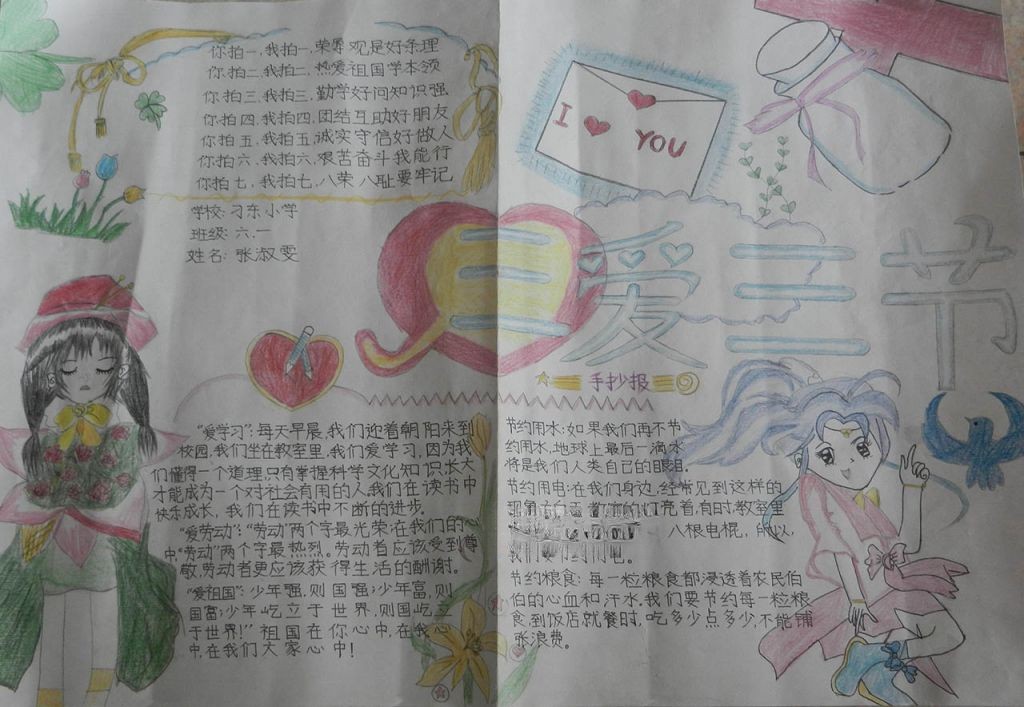 你拍一,我拍一,荣辱观是好条理
你拍二,我拍二,热爱祖国学本领
你拍三,我拍三,勤学好问知识强
你拍四,我拍四,团结互助好朋友
你拍五,我拍五,诚实守信好做人
你拍六,我拍六,艰苦奋斗我能行
你拍七,我拍七,八荣八耻要牢记
学校:刁东小学
班级:六.一
姓名:张淑雯
I YOU
三爱三节
手抄报
“爱学习”:每天早晨,我们迎着朝阳来到
校园,我们坐在教室里,我们爱学习,因为我
们懂得一个道理,只有掌握科学文化知识,长大
才能成为一个对社会有用的人.我们在读书中
快乐成长,我们在读书中不断的进步。
“爱劳动”:“劳动”两个字最光荣:在我们的心
中“劳动”两个字最热烈。劳动者应该受到尊
敬,劳动者更应该获得生活的酬谢。
“爱祖国”:少年强,则国强;少年富,则
国富;少年屹立于世界,则国屹立
于世界!”祖国在你心中,在我心
中,在我们大家心中!
节约用水:如果我们再不节
约用水,地球上最后一滴水
将是我们人类自己的眼泪.
节约用电:在我们身边,经常见到这样的
亮着,有时,教室里
八根电棍,所以,
节约粮食:每一粒粮食都浸透着农民伯
伯的心血和汗水.我们要节约每一粒粮
食到饭店就餐时,吃多少点多少,不能铺
张浪费。